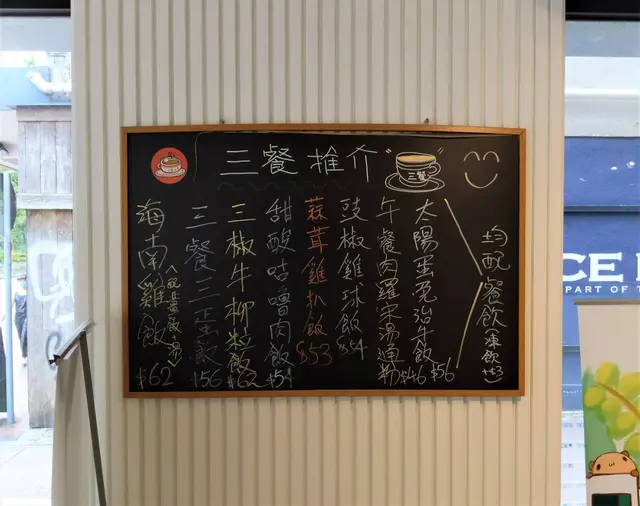 三餐推介
三餐
均配餐飲（凍飲+$3）
太陽蛋免治牛飯 $56
午餐肉羅宋湯通粉 $46
豉椒雞球飯 $54
蒜茸雞扒飯 $53
甜酸咕嚕肉飯 $54
三椒牛柳粒飯 $62
三餐三蛋飯 $56
海南雞飯 $62
CE
PART OF T